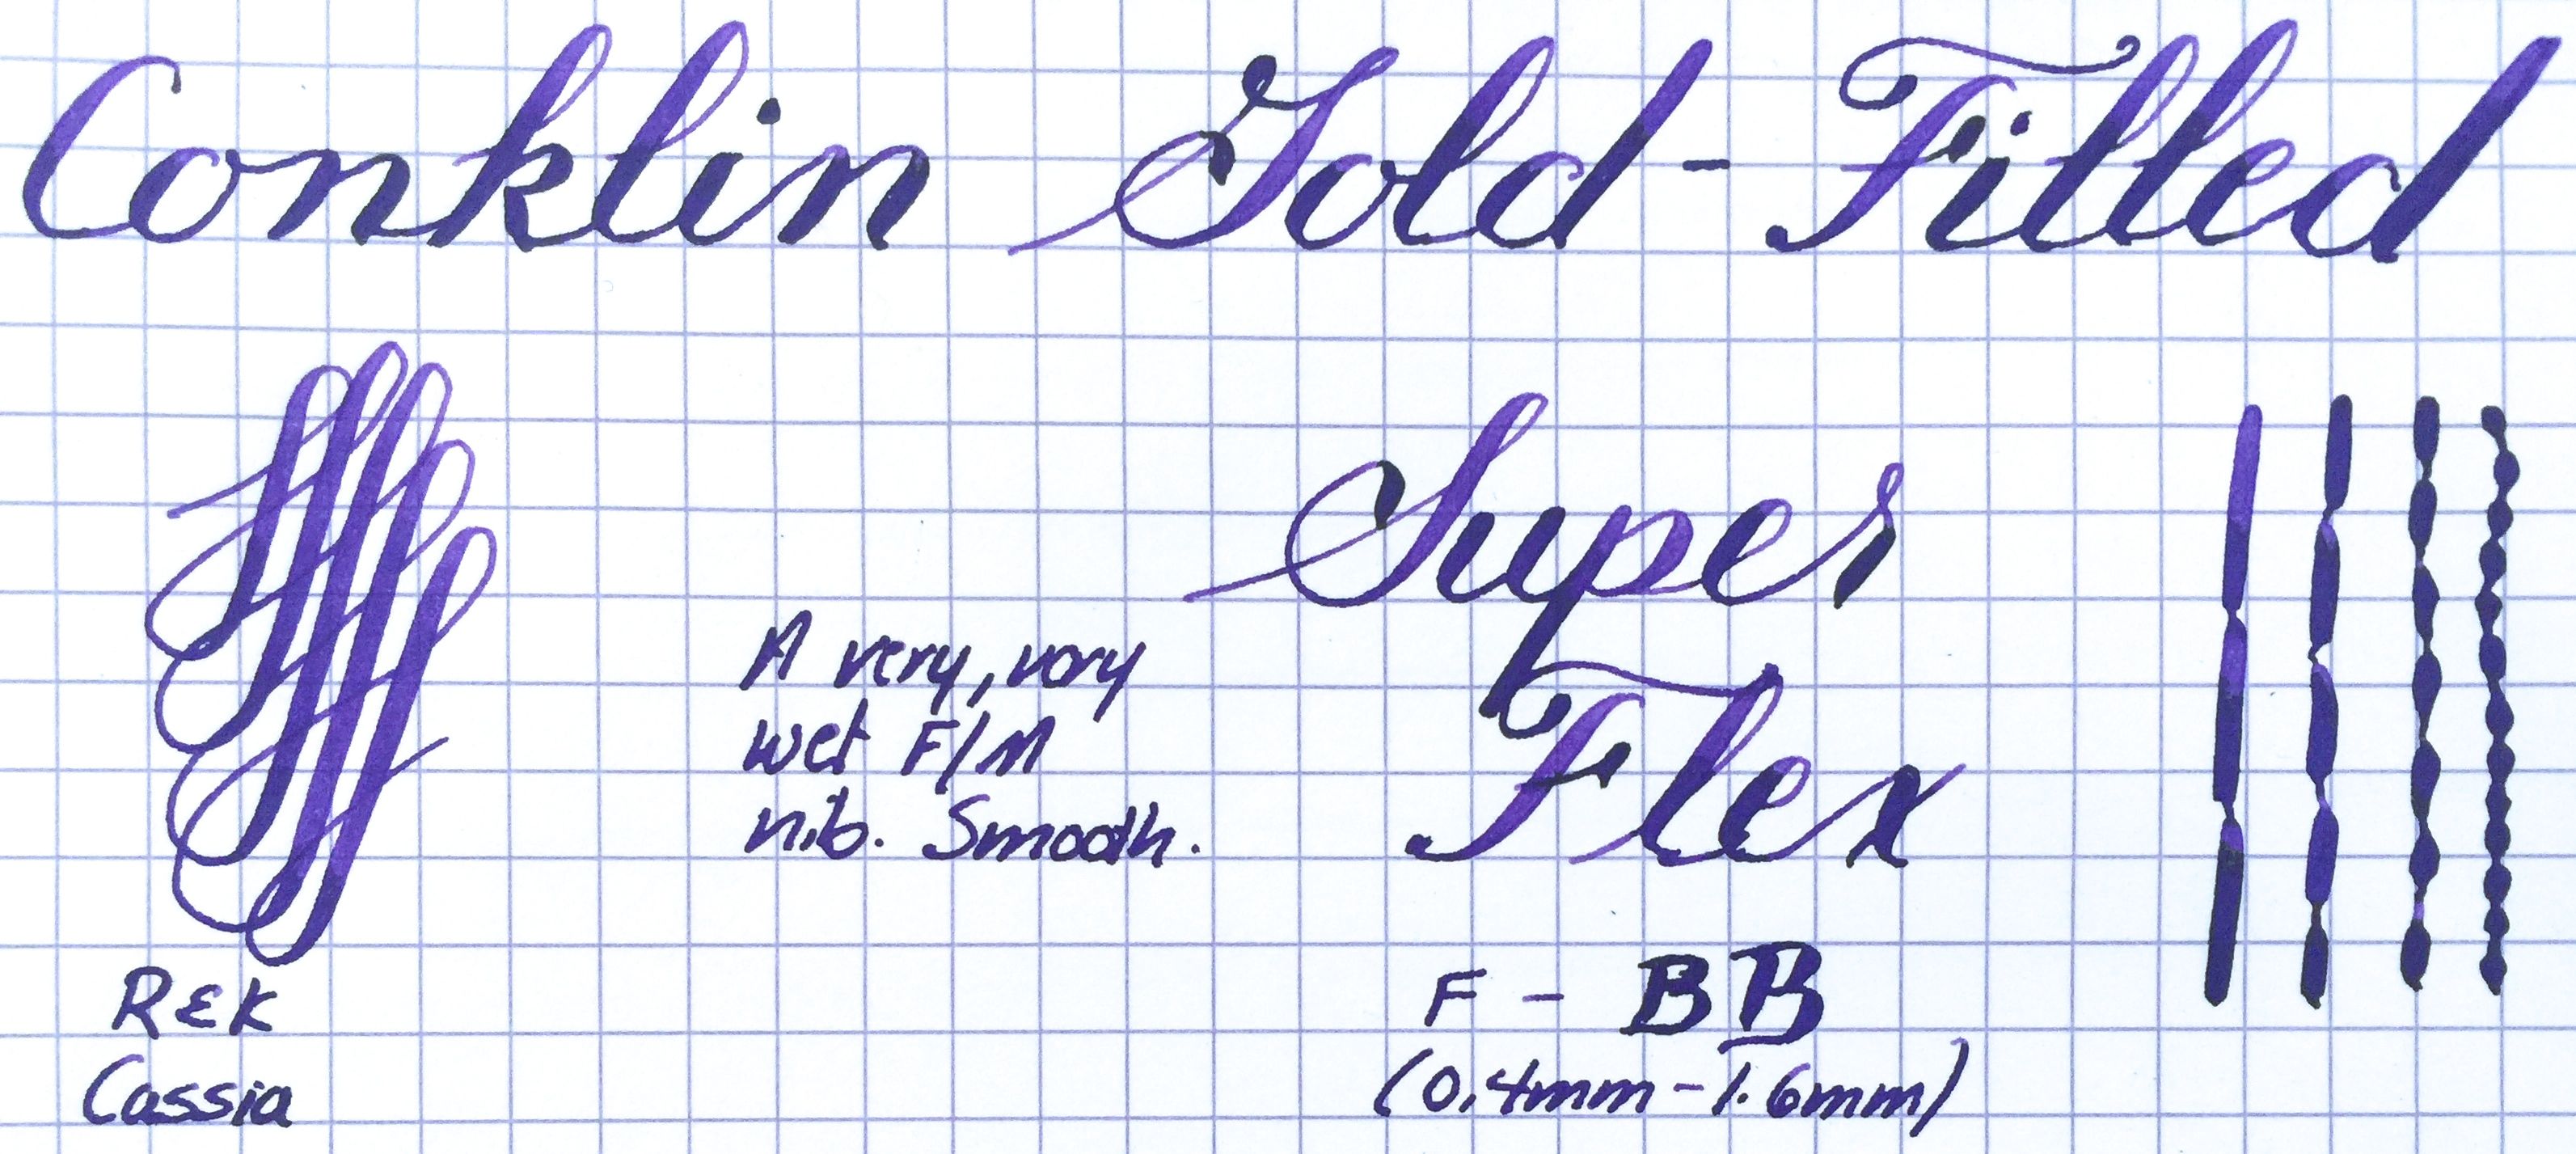 Conklin Gold-Filled
Super
Flex
A very, very
wet F/M
nib. Smooth.
F - BB
(0.4mm-1.6mm)
R&K
Cassia